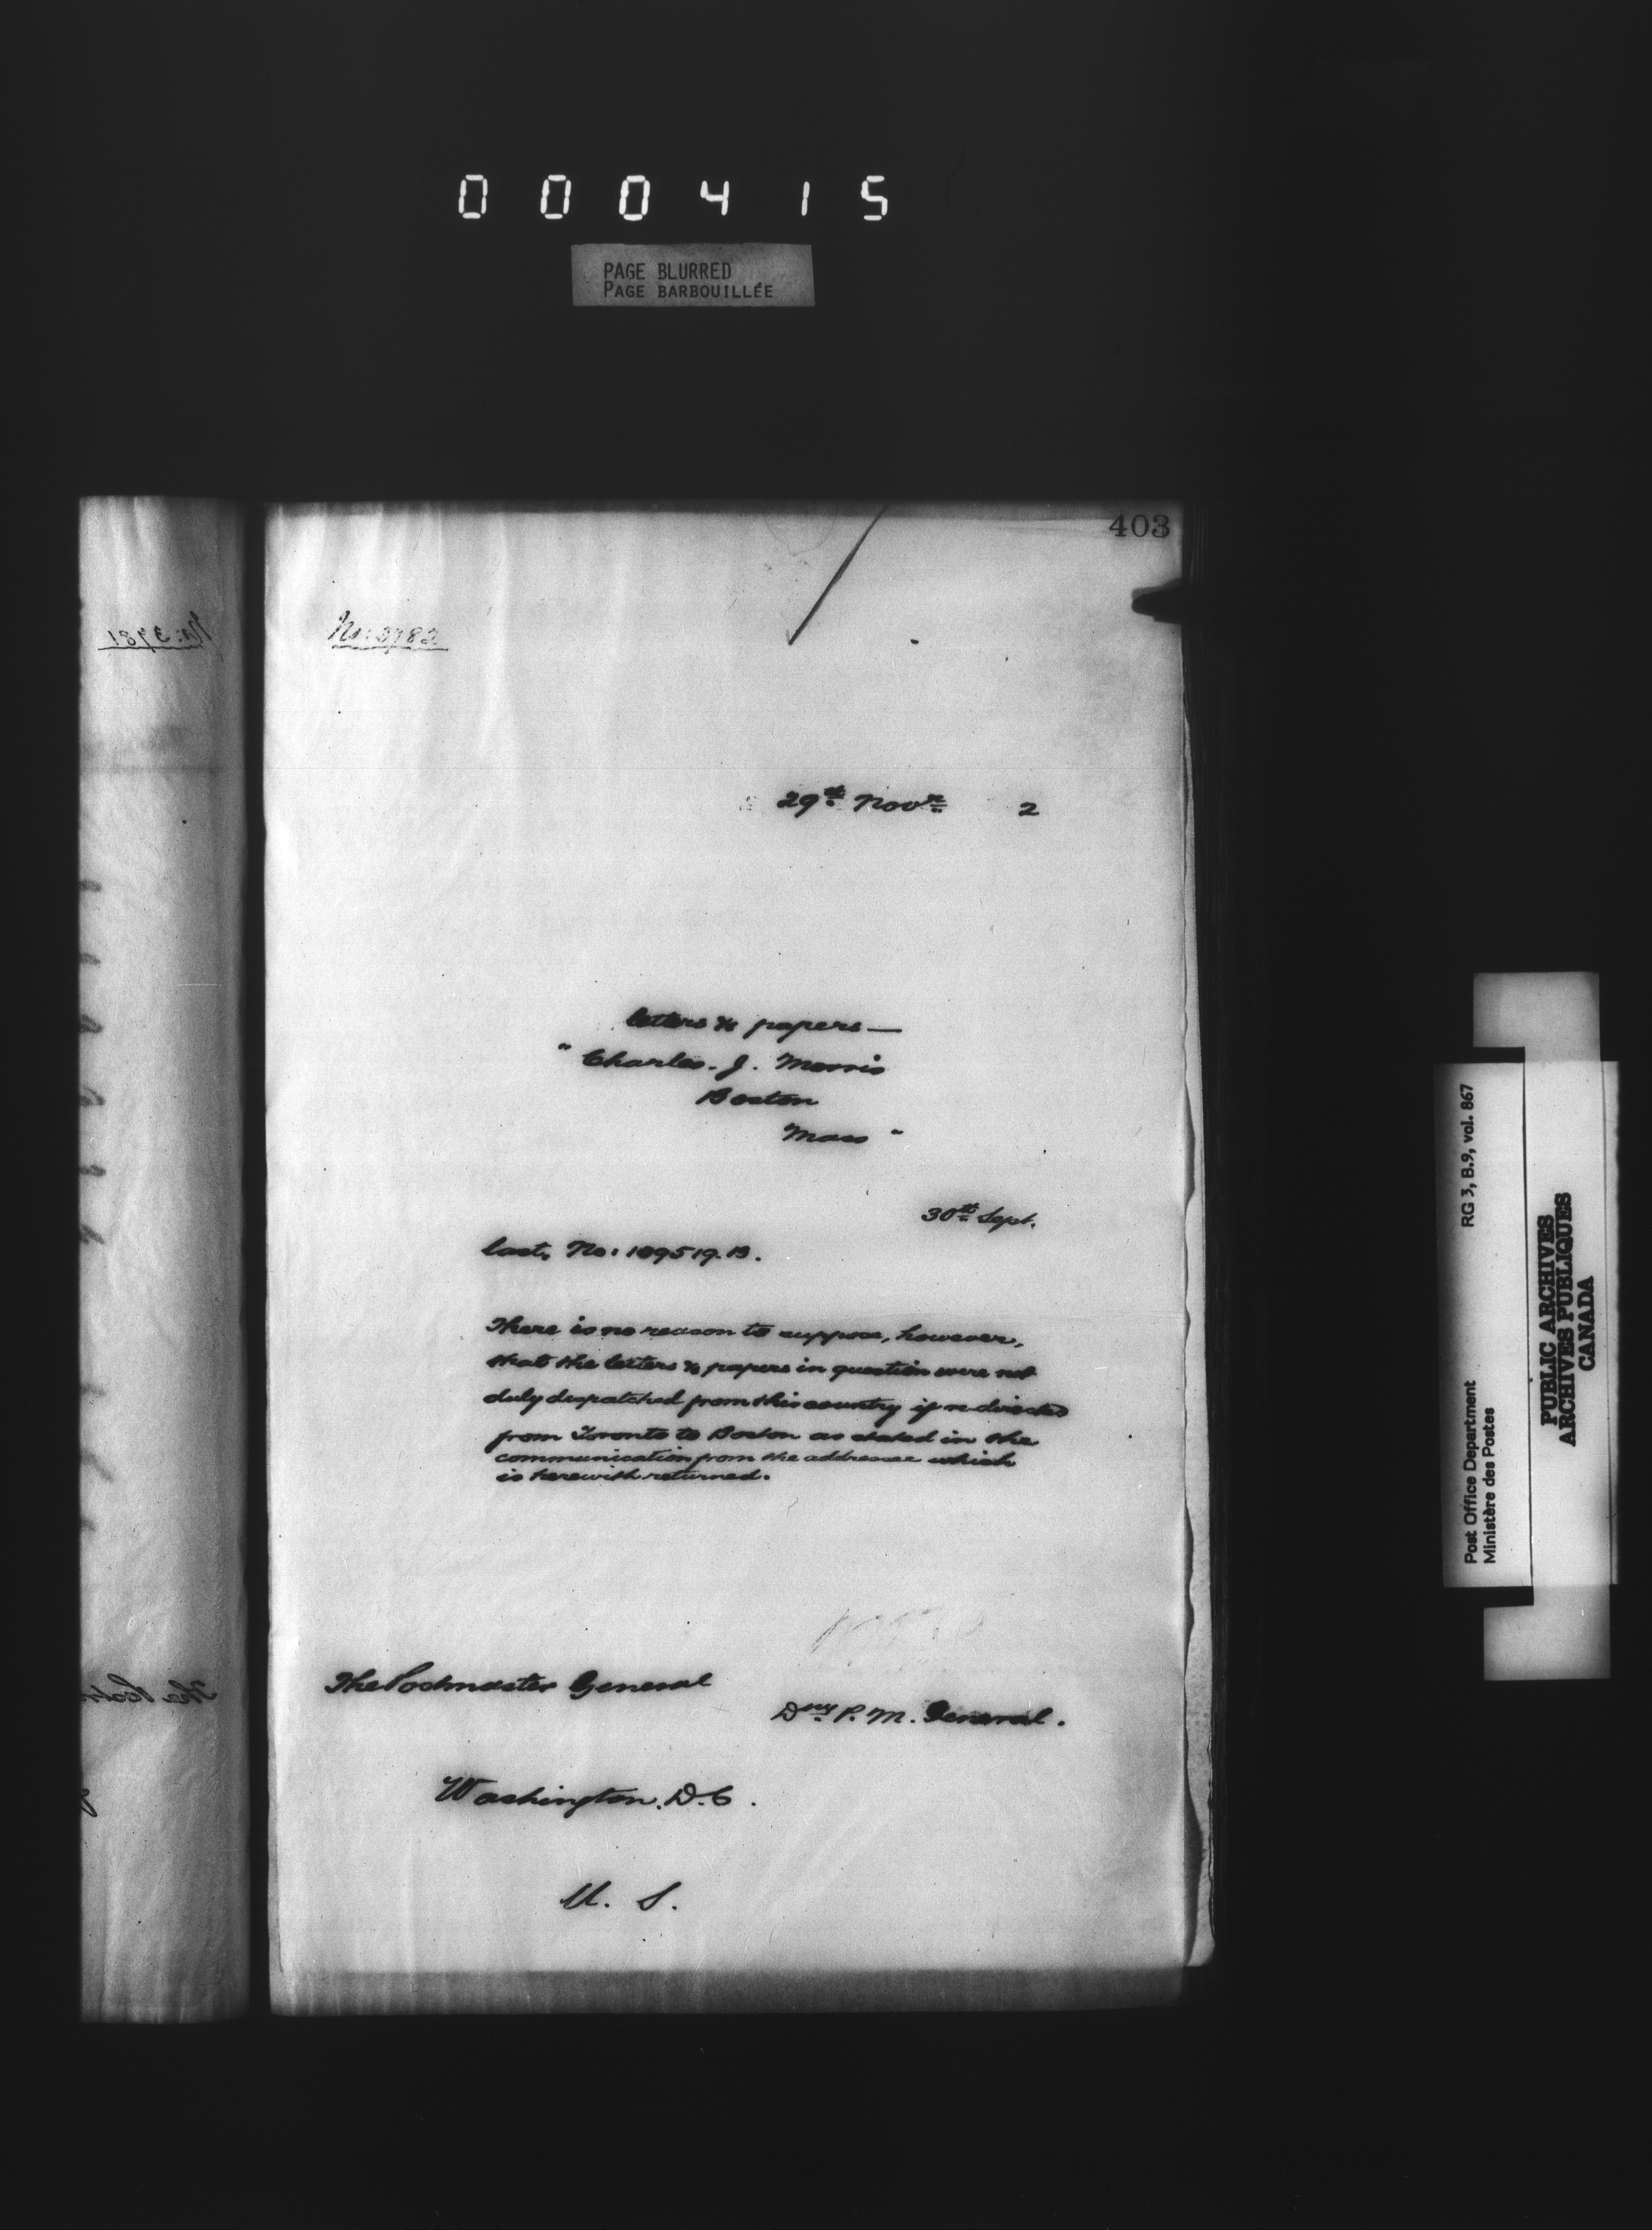 000415
PAGE BLURRED
PAGE BARBOUILLÉE
403
No: 3782
29th Novr 2
letters & papers —
"Charles. J. Morris
Boston
Mass"
30th Sept.
last, No: 189519. B.
There is no reason to suppose, however,
that the letters & papers in question were not
duly despatched from this country if re-directed
from Toronto to Boston as stated in the
communication from the addressee which
is herewith returned.
The Postmaster General
Dny P. M. General.
Washington. D. C.
U. S.
Post Office Department RG 3, B.9, vol. 867
Ministère des Postes
PUBLIC ARCHIVES
ARCHIVES PUBLIQUES
CANADA